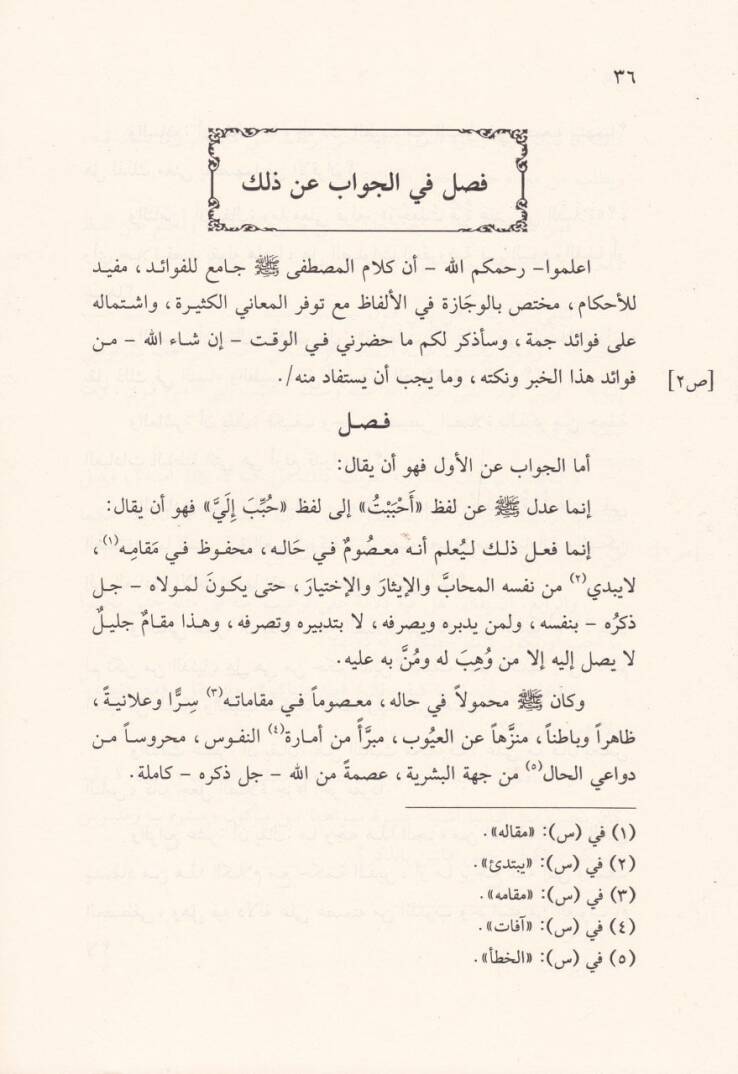 ٣٦
فصل في الجواب عن ذلك
اعلموا- رحمكم الله - أن كلام المصطفى ﷺ جامع للفوائد، مفيد
للأحكام، مختص بالوجَازة في الألفاظ مع توفر المعاني الكثيرة، واشتماله
على فوائد جمة، وسأذكر لكم ما حضرني في الوقت - إن شاء الله - من
فوائد هذا الخبر ونكته، وما يجب أن يستفاد منه/. [ص٢]
فصل
أما الجواب عن الأول فهو أن يقال:
إنما عدل ﷺ عن لفظ «أَحْبَبْتُ» إلى لفظ «حُبِّبَ إِلَيَّ» فهو أن يقال:
إنما فعل ذلك ليُعلم أنه معصُومٌ في حَاله، محفوظ في مَقامِه(١)،
لايبدي(٢) من نفسه المحابَّ والإيثارَ والإختيارَ، حتى يكونَ لمولاه - جل
ذكرُه - بنفسه، ولمن يدبره ويصرفه، لا بتدبيره وتصرفه، وهذا مقامٌ جليلٌ
لا يصل إليه إلا من وُهِبَ له ومُنَّ به عليه.
وكان ﷺ محمولاً في حاله، معصوماً في مقاماته(٣) سِرًّا وعلانيةً،
ظاهراً وباطناً، منزَّهاً عن العيُوب، مبرَّأً من أمارة(٤) النفوس، محروساً من
دواعي الحال(٥) من جهة البشرية، عصمةً من الله - جل ذكره - كاملة.
(١) في (س): «مقاله».
(٢) في (س): «يبتدئ».
(٣) في (س): «مقامه».
(٤) في (س): «آفات».
(٥) في (س): «الخطأ».